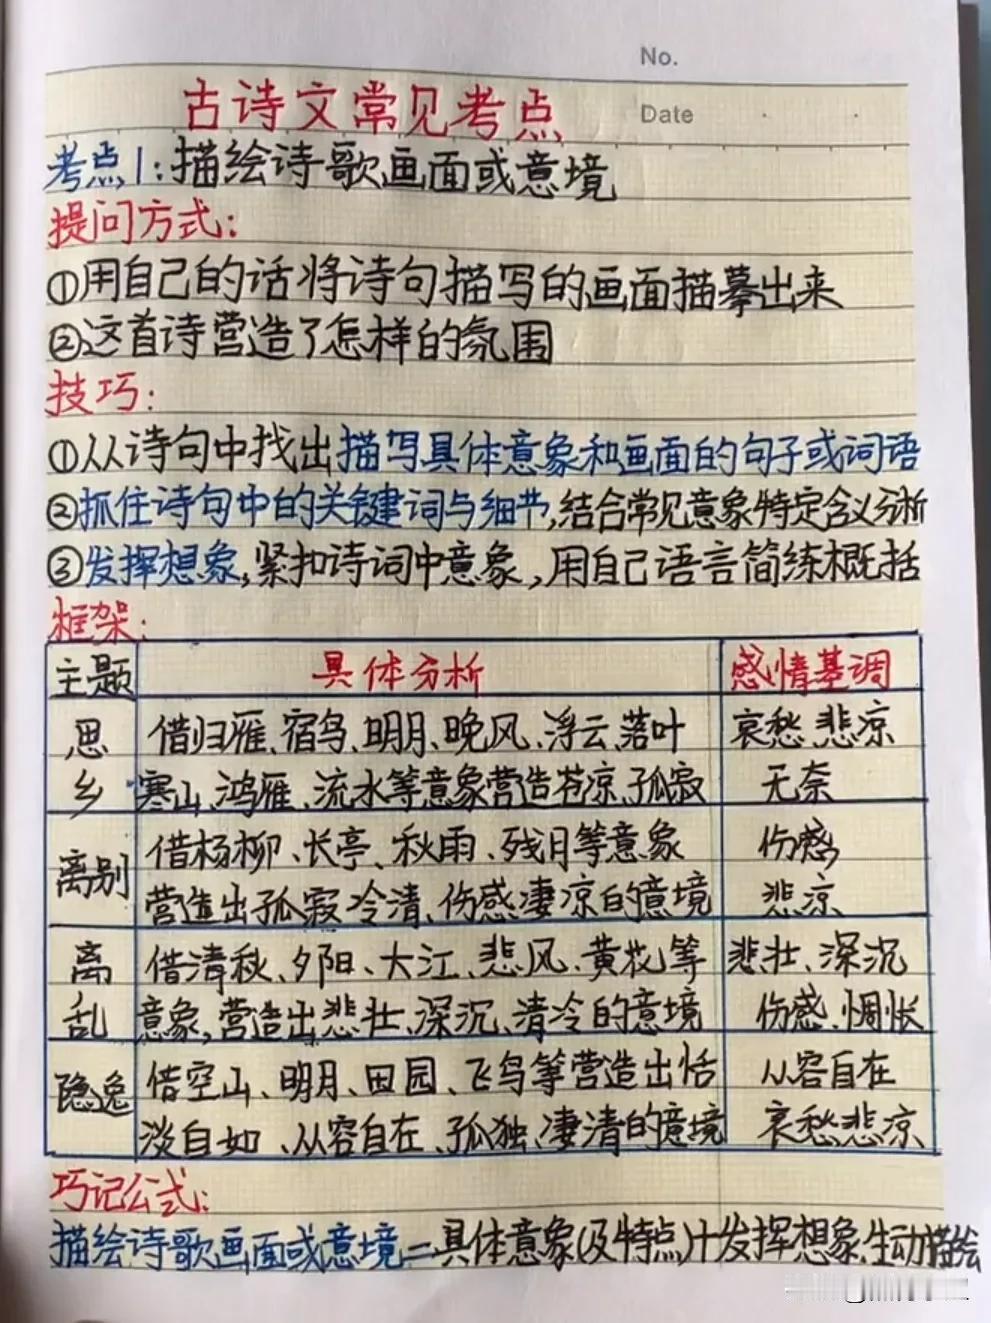 No.
Date
古诗文常见考点
考点1:描绘诗歌画面或意境
提问方式:
①用自己的话将诗句描写的画面描摹出来
②这首诗营造了怎样的氛围
技巧:
①从诗句中找出描写具体意象和画面的句子或词语
②抓住诗句中的关键词与细节,结合常见意象特定含义分析
③发挥想象,紧扣诗词中意象,用自己语言简练概括
框架:
主题 具体分析 感情基调
思乡 借归雁、宿鸟、明月、晚风、浮云、落叶 哀愁、悲凉
寒山、鸿雁、流水等意象营造苍凉、孤寂 无奈
离别 借杨柳、长亭、秋雨、残月等意象 伤感
营造出孤寂冷清、伤感凄凉的意境 悲凉
离乱 借清秋、夕阳、大江、悲风、黄花等 悲壮、深沉
意象,营造出悲壮、深沉、清冷的意境 伤感、惆怅
隐逸 借空山、明月、田园、飞鸟等营造出恬 从容自在
淡自如、从容自在、孤独、凄清的意境 哀愁悲凉
巧记公式:
描绘诗歌画面或意境=具体意象(及特点)+发挥想象.生动描绘